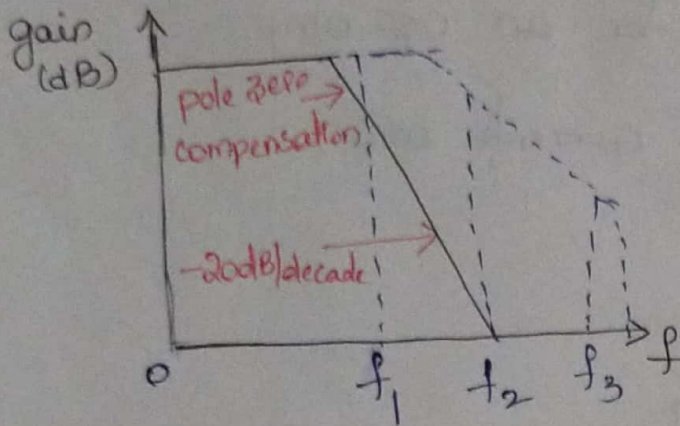 gain
(dB)
pole zero
compensation
-20dB/decade
0
f1
f2
f3
f